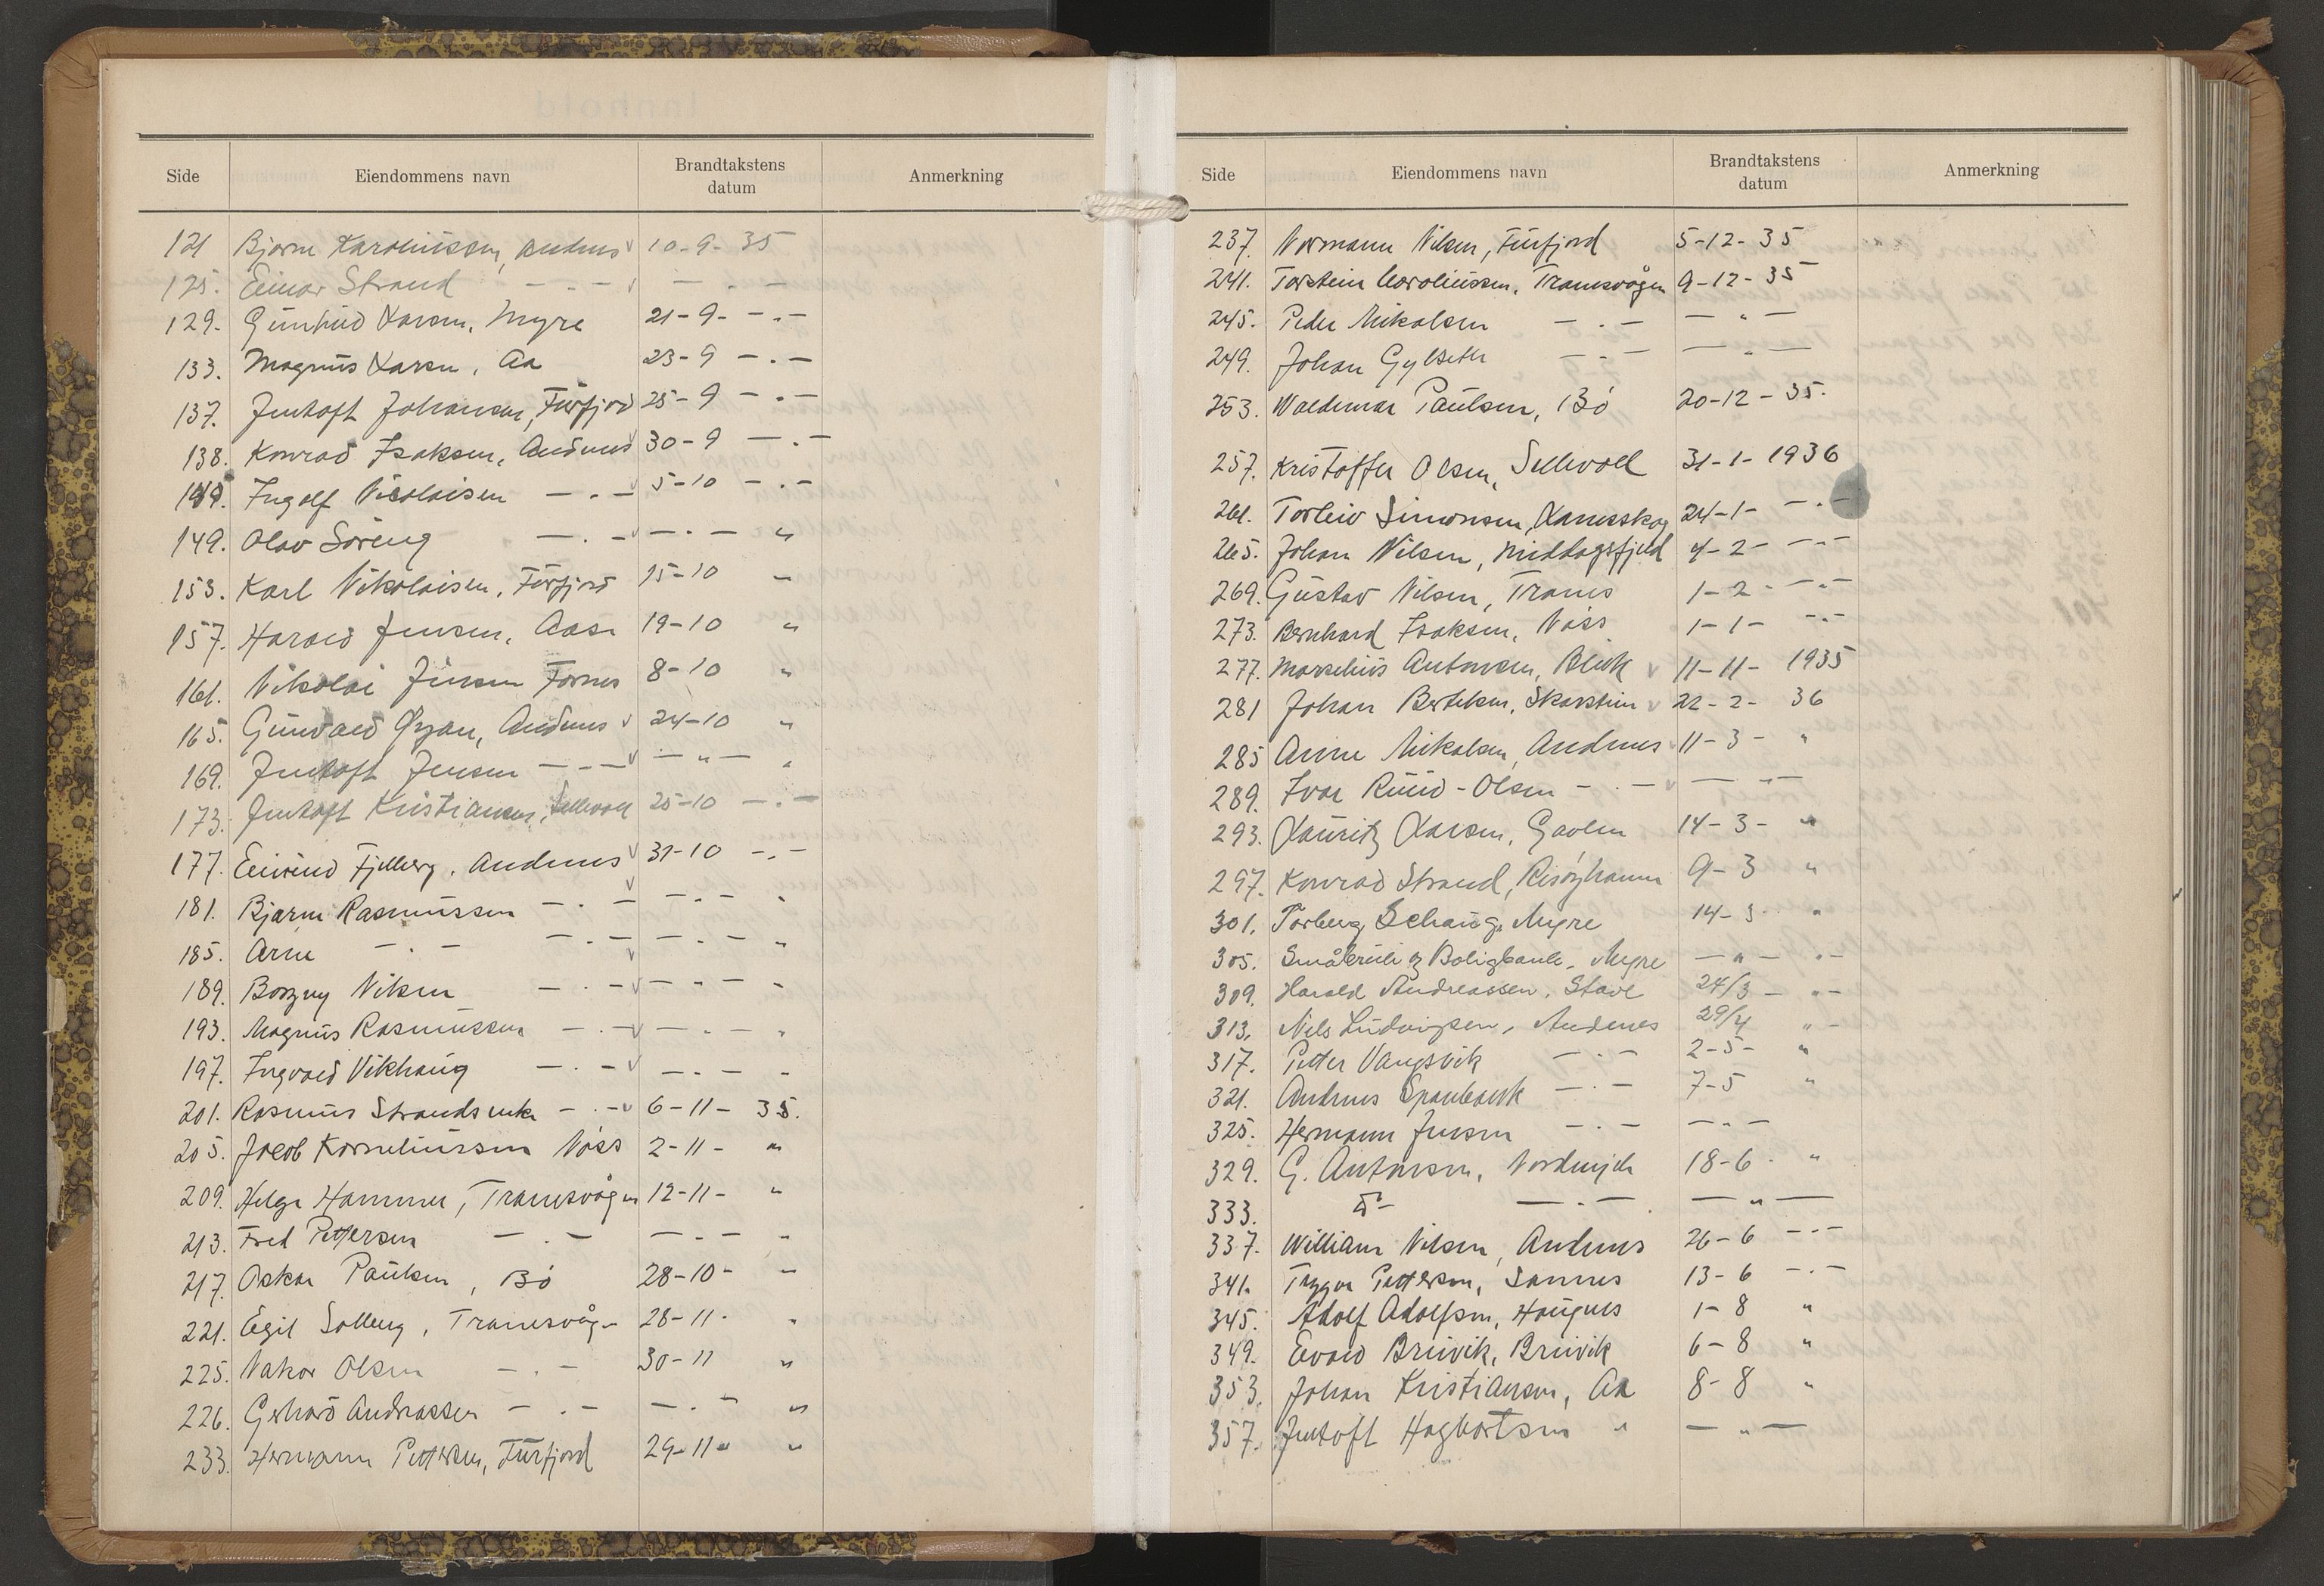 Side Eiendommens navn Brandtakstens datum Anmerkning
121 Bjarne Karoliussen, Andenes v 10-9-35
125. Einar Strand — . — v — . —
129. Gunhild Larsen, Myre 21-9- — . —
133. Magnus Larsen, Aa 23-9 — . —
137. Jentoft Johansen, Fürfjord 25-9 — . —
138. Konrad Isaksen, Andenes v 30-9 — . —
Ingolf Nicolaisen — . — v 5-10 — . —
149. Olav Söreng — . — v — . — "
153. Karl Nikolaisen, Fürfjord 15-10 "
157. Harald Jensen, Aase 19-10 "
161. Nikolai Jensen Fornes 8-10 "
165. Gunvald , Andenes v 24-10 "
169. Jentoft Jensen — . — v — " — "
173. Jentoft Kristiansen, Sellevoll 25-10 — . —
177. Eivind Fjelberg, Andenes v 31-10 — . —
181. Bjarne Rasmussen — . — v — . — "
185. Arne — . — — . — v — . — "
189. Borgny Nilsen — . — v — . — "
193. Magnus Rasmussen — . — v — . — "
197. Ingvald Vikhaug — . — v — . — "
201. Rasmus Strands enke — . — v 6-11- 35.
205. Jacob Korneliussen Nöss 2-11- "
209. Helge Hammer, Tranesvågen 12-11- "
213. Fred Pettersen — . — — . — "
217. Oskar Paulsen, Bö 28-10- "
221. Egil Solberg, Tranesvågen 28-11- "
225. Nakor Olsen — . — 30-11 "
226. Gerhard Andreassen — . — — . — "
233. Hermann Pettersen, Fürfjord 29-11- "
Side Eiendommens navn Brandtakstens datum Anmerkning
237. Normann Nilsen, Fürfjord 5-12-35
241. Torstein Caroliussen, Tranesvågen 9-12-35
245. Peder Mikalsen — . — — " —
249. Johan Gylseth — . — — " —
253. Waldemar Paulsen, Bö 20-12-35.
257. Kristoffer Olsen, Sellevoll 31-1-1936
261. Torleiv Simonsen, Lanesskog 24-1- — . —
265. Johan Nilsen, Middagsfjeld 4-2- — . —
269. Gustav Nilsen, Tranes 1-2- — . —
273. Bernhard Isaksen, Nöss 1-1- — . —
277. Marselius Antonsen, Bleik v 11-11- 1935
281 Johan Bertelsen, Skarstein v 22-2- 36
285 Arne Mikalsen, Andenes 11-3- "
289. Ivar Ruud-Olsen — . — v — " —
293. Lauritz Larsen, Gavlen 14-3- "
297. Konrad Strand, Risöyhamn 9-3 "
301. Torberg Schaug, Myre 14-3- "
305. Småbruk og Boligbank, Myre — " — . —
309. Harald Andreassen, Stave 24/3 — . —
313. Nils Ludvigsen, Andenes 29/4 " —
317. Petter Vangsvik — . — 2-5- "
321. Andenes Sparebank — . — 7-5 "
325. Hermann Jensen — . — — . —
329. G. Antonsen, Nordmjele 18-6- "
333. Do — . — — " —
337. William Nilsen, Andenes 26-6 — . —
341. Trygve Pettersen, Sannes 13-6 — . —
345. Adolf Adolfsen, Haugnes 1-8 "
349. Evald Breivik, Breivik 6-8 "
353. Johan Kristiansen, Aa 8-8 "
357. Jentoft Hagbartsen " — " —